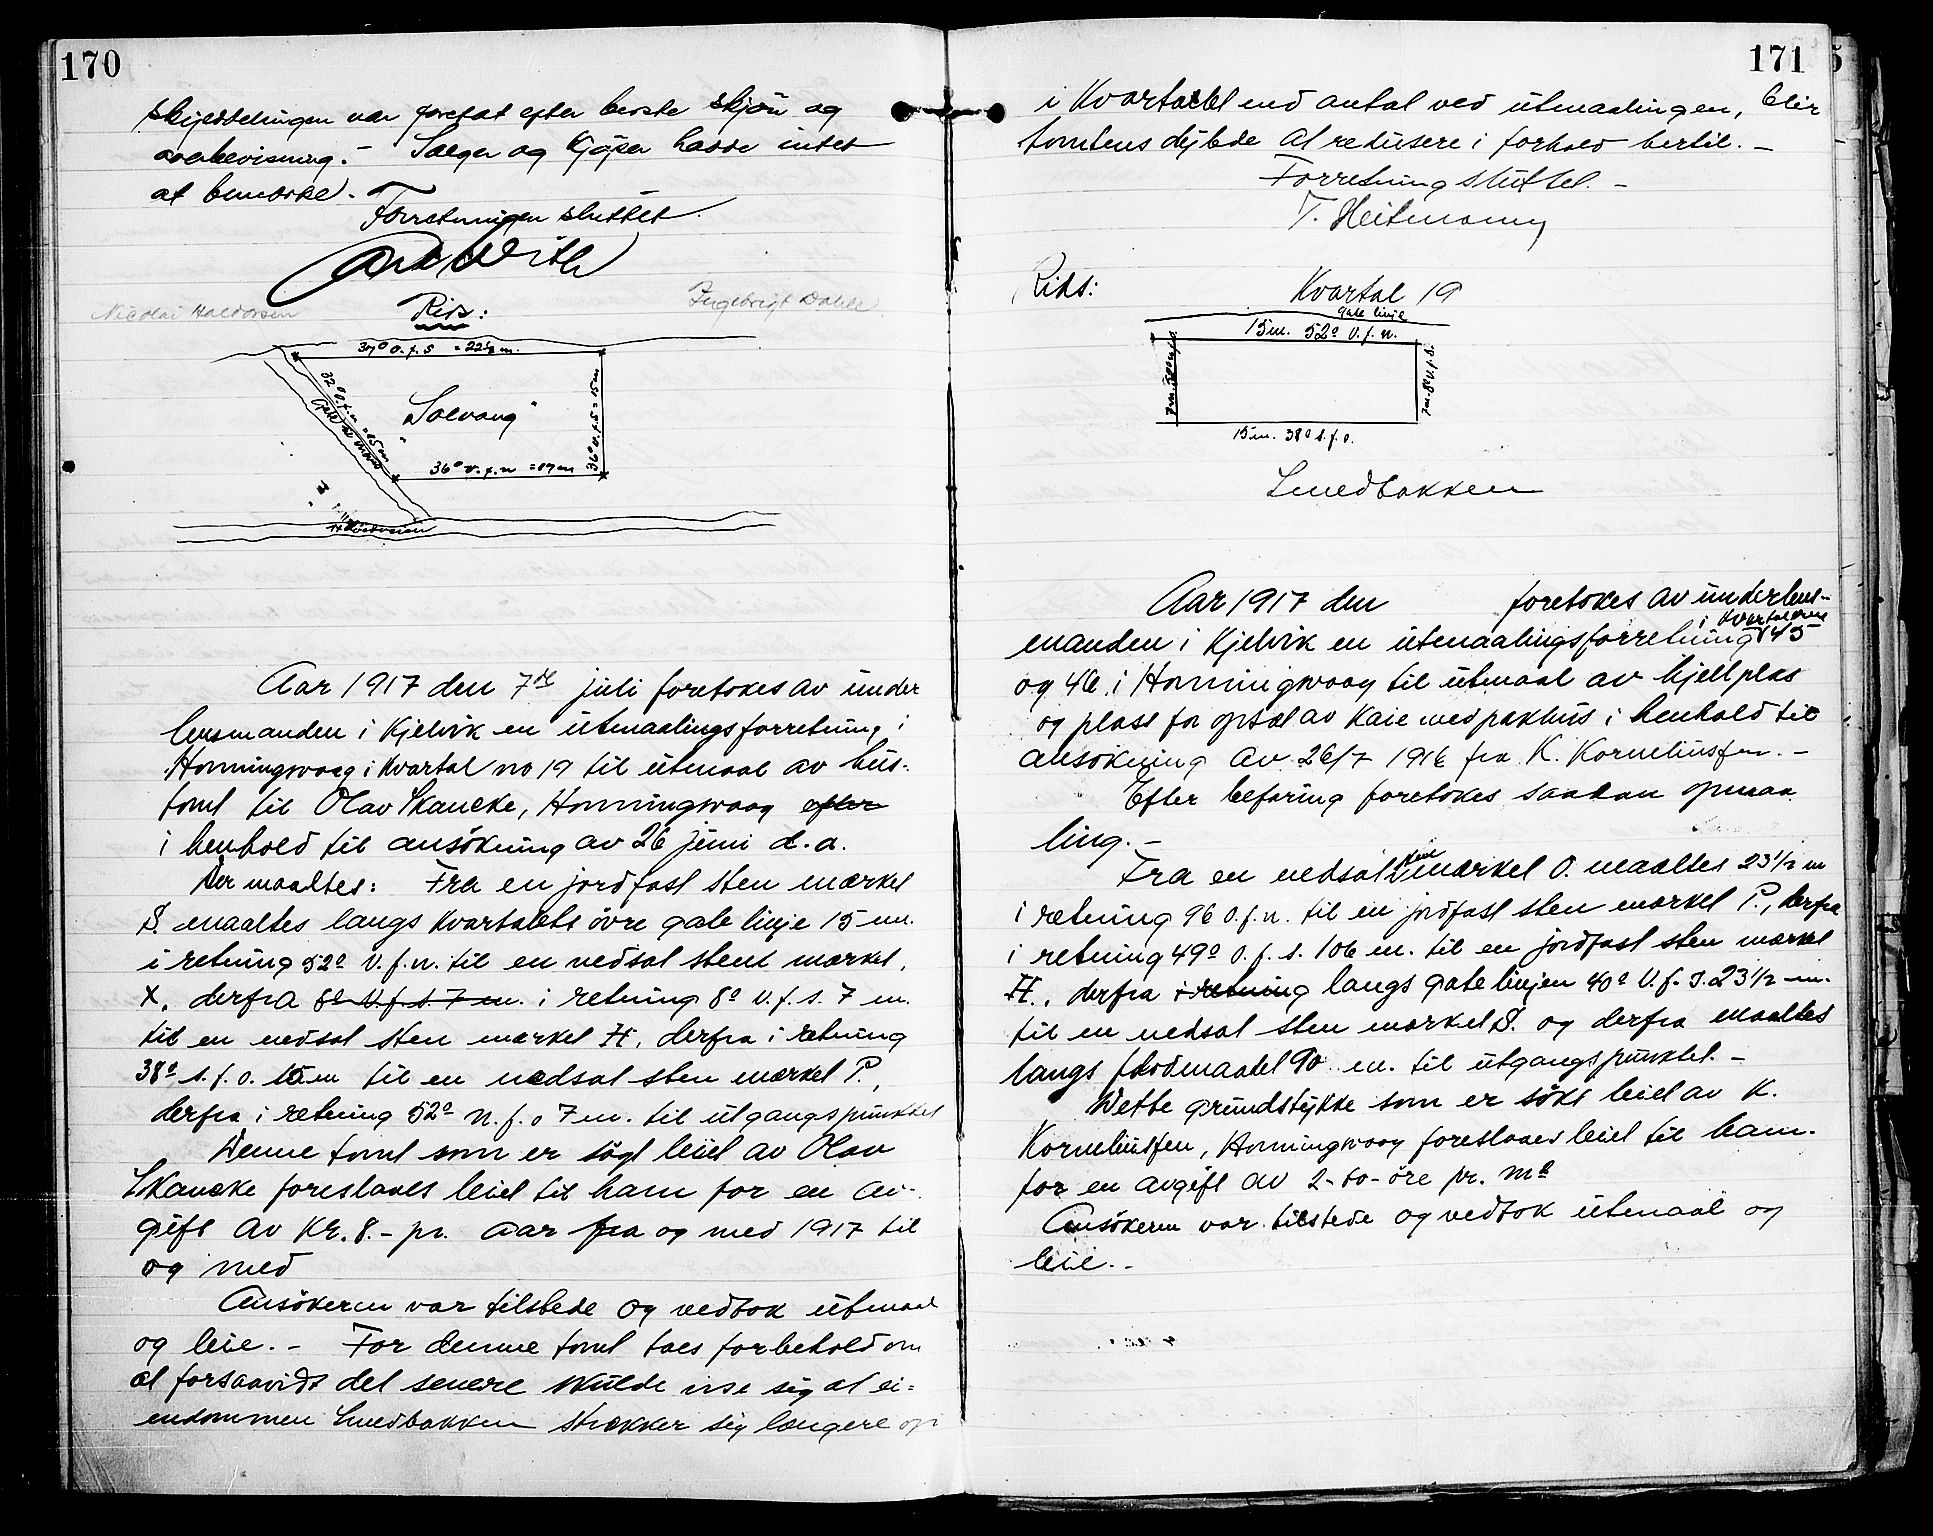 170
skjelsdelingen var foretat efter beste skjön og
overbevisning. – Sælger og Kjöper hadde intet
at bemerke. –
Forretningen sluttet
Nicolai Haldorsen
Ingebrigt Dahle
Riss:
30° O. f. S = 22½ m.
32° V. f. n = 15 m
"Solvang"
36° V. f. S = 15 m
36° v. f. n = 17 m
Aar 1917 den 7de juli foretokes av under
lensmanden i Kjelvik en utmaalingsforretning i
Honningsvaag i Kvartal no 19 til utmaal av hus-
tomt til Olav Skancke, Honningsvaag efter
i henhold til ansökning av 26 juni d. a.
Der maaltes: Fra en jordfast sten merket
S. maaltes langs Kvartalets övre gate linje 15 m.
i retning 52° V. f. n. til en nedsat sten merket.
X, derfra 8° V. f. s. 7 m. i retning 8° v. f. s. 7 m.
til en nedsat sten merket H, derfra i retning
38° s. f. o. 15 m til en nedsat sten merket P.,
derfra i retning 52° n. f. o 7 m. til utgangspunktet
Denne tomt som er sögt leiet av Olav
Skancke foreslaaes leiet til ham for en av-
gift av Kr. 8. – pr. aar fra og med 1917 til
og med
Ansökeren var tilstede og vedtok utmaal
og leie. – For denne tomt taes forbehold om
at forsaavidt det senere skulde vise sig at ei-
endommen Smedbakken strækker sig længere op
171
i Kvartalet end antat ved utmaalingen, blir
tomtens dybde at redusere i forhold hertil. –
Forretning sluttet. –
T. Heitmann
Rids:
Kvartal 19
gate linje
15 m. 52° V. f. n.
7 m. 8° V. f. S.
15 m. 38° s. f. o.
Smedbakken
Aar 1917 den foretokes av underlens-
manden i Kjelvik en utmaalingsforretning i Kvartalerne 45
og 46 i Honningsvaag til utmaal av hjellplas
og plass for opsæt av Kaie med pakhus i henhold til
ansökning av 26/7 1916 fra K. Korneliussen. –
Efter befaring foretokes saadan opmaa
ling. –
Fra en nedsat sten merket O. maaltes 23½ m
i retning 96 o. f. n. til en jordfast sten merket P., derfra
i retning 49° o. f. s. 106 m. til en jordfast sten merket
H., derfra i retning langs gatelinjen 40° V. f. S. 23½ m.
til en nedsat sten merket S. og derfra maaltes
langs flodmaalet 90 m. til utgangspunktet. –
Dette grundstykke som er sökt leiet av K.
Korneliussen, Honningsvaag foreslaaes leiet til ham.
for en avgift av 2-to-öre pr. m²
Ansökeren var tilstede og vedtok utmaal og
leie. –